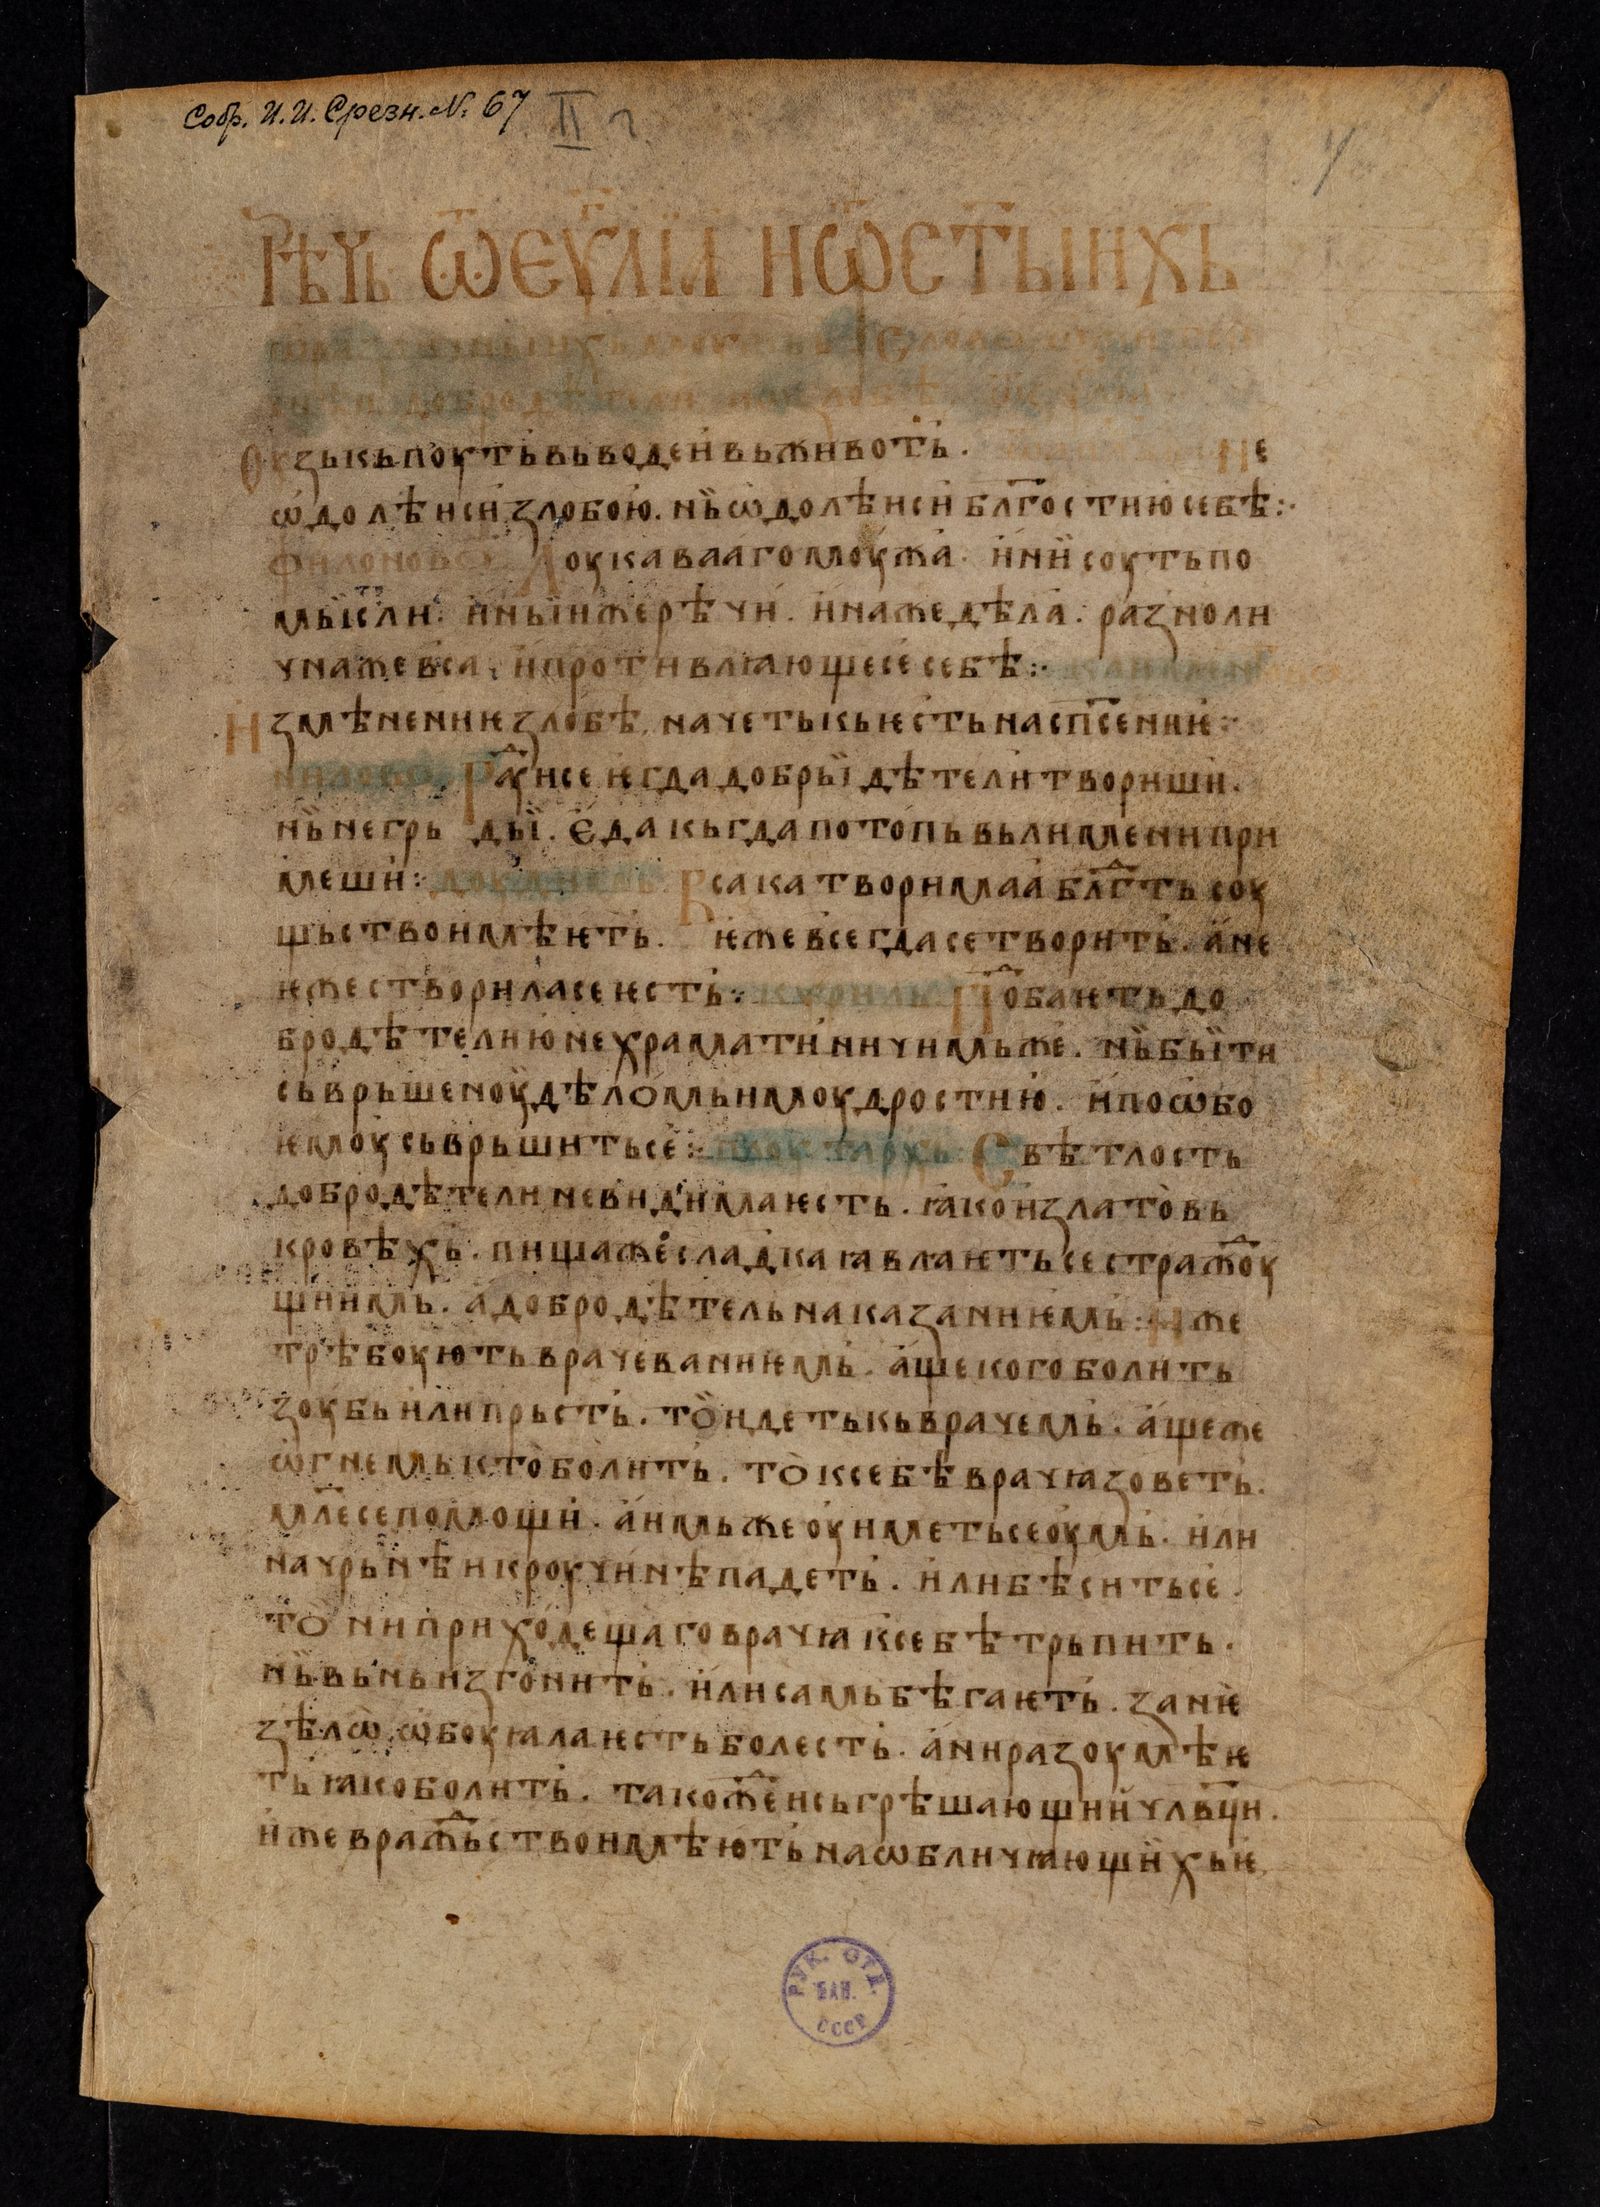 Собр. И. И. Срезн. N. 67 II
Рѣчь ѿ еѵⷢ҇лїꙗ и ѿ ст҃ыихь
доброд тели
Оузькь поуть вьводеи вь животь. Не
ѡдолѣи си злобою. нь ѡдолѣи си бл҃гостию себѣ:·
филоново Лоукавааго моужа. ини соуть по
мысли. ины иже рѣчи. ина же дѣла. разноли
чна же вса. и противлꙗюще се себѣ:·
Измѣнение злобѣ, начетькь ѥсть на сп҃сение:·
Рач҇и се ѥгда добрыи дѣтели твориши.
нь не грь ды. Ѥда кьгда потопь вь лимени при
меши: Всака творимаа бл҃гть соу
щьство имѣѥть. ѥже всегда се творить. а не
ѥже створила се ѥсть:· Пⷣобаѥть до
бродѣтелию не храмати ни чимьже. нь быти
сьврьшеноу дѣломь и моудростию. и по ѡбо
ѥмоу сьврьшить се:· Свѣтлость
добродѣтели невидима ѥсть. ꙗко и злато вь
кровѣхь. пища же сладка ꙗвлꙗѥть се стражⷣоу
щиимь. а добродѣтель наказаниѥмь:· Иже
трѣбоують врачеваниѥмь. аще кого болить
зоубь или прьсть. то идеть кь врачемь. аще же
ѡгнемь кто болить. то к себѣ врачꙗ зоветь.
мл҃е се помощи. а имьже оуиметь се оумь. или
на чрьнѣи кроучинѣ падеть. или бѣсить се.
то ни приходещаго врачꙗ к себѣ трьпить.
нь вьнь изгонить. или самь бѣгаѥть. заниѥ
зѣлѡ ѡбоуꙗла ѥсть болесть. а ни разоумѣѥ
ть ꙗко болить. такожⷣе и сьгрѣшающии чл҃вци.
иже вражⷣьство имѣють на ѡбличꙗющихь ѥ
РУК. ОТД.
БАН.
СССР